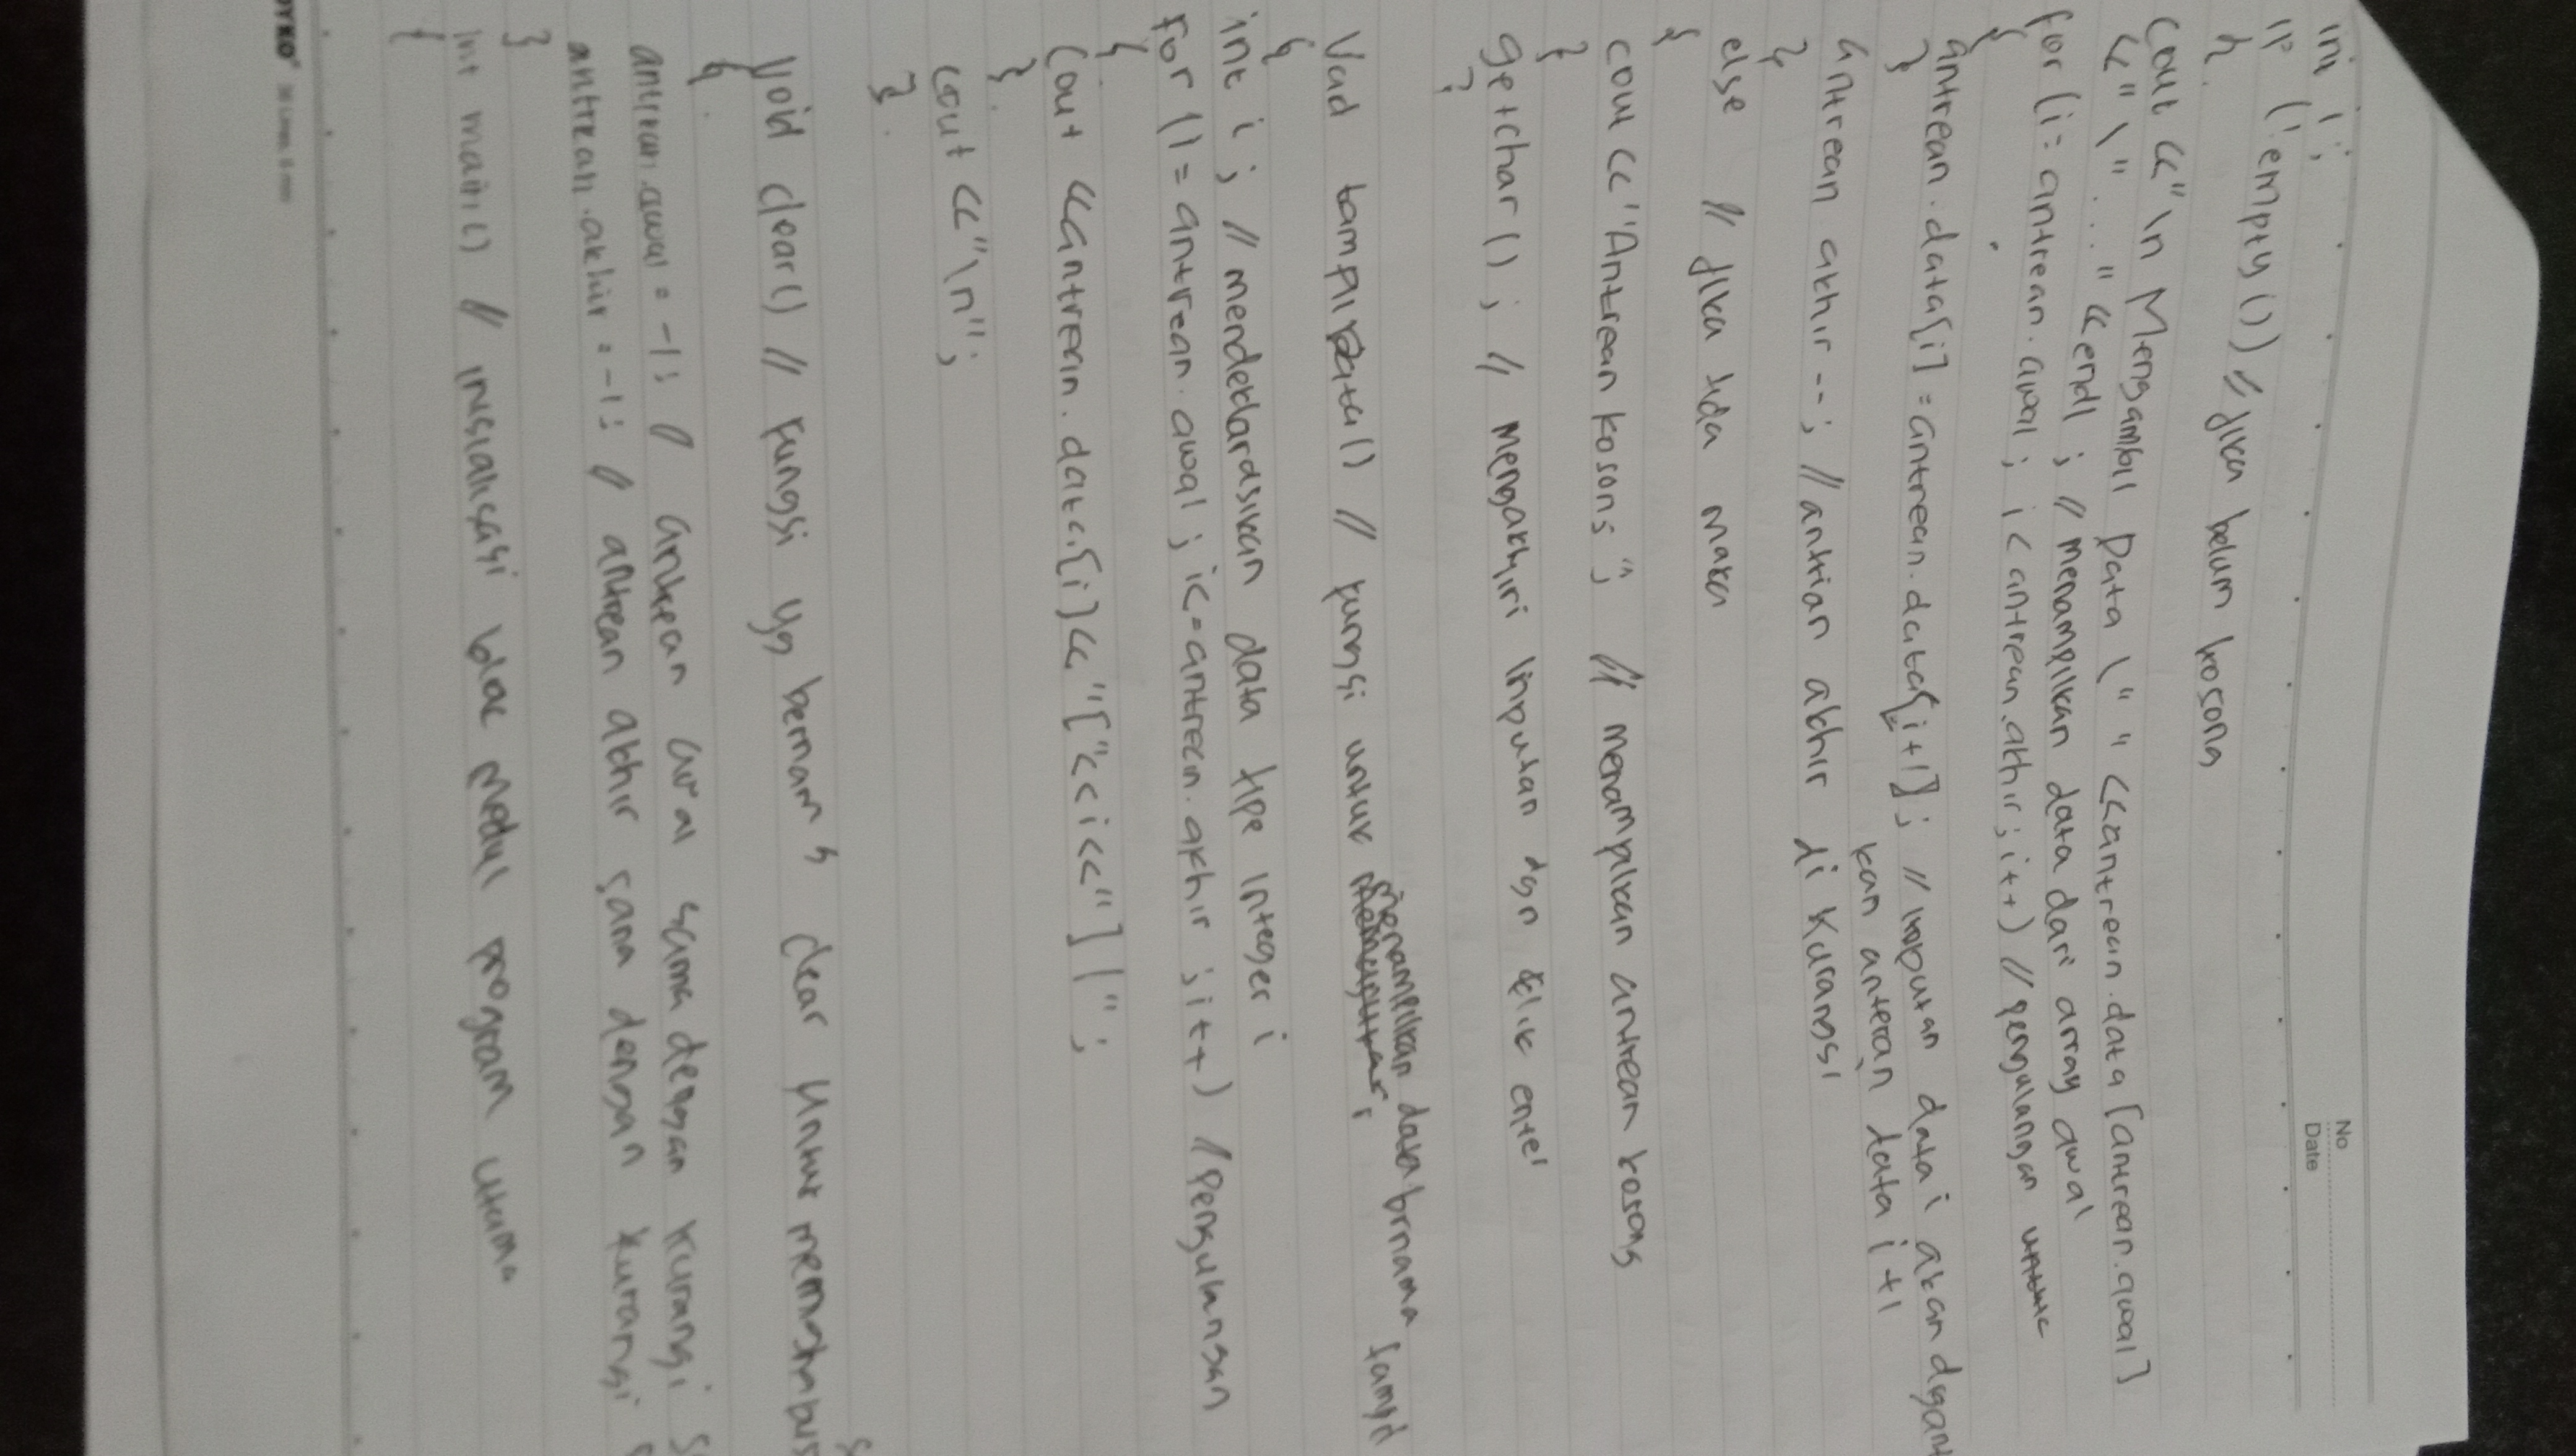 No
Date
int i;
if (!empty()) // jika belum kosong
{
cout <<"\n Mengambil Data \" " <<antrean.data[antrean.awal]
<<"\"..." <<endl ; // menampilkan data dari array awal
for (i = antrean.awal ; i < antrean.akhir ; i++) // pengulangan untuk
{
antrean.data[i] = antrean.data[i+1]; // inputan data i akan digant
} kan antrean data i+1
antrean akhir --; // antrian akhir di kurangi
}
else // jika tida maka
{
cout <<"Antrean kosong"; // menampilkan antrean kosong
}
getchar() ; // mengakhiri inputan dgn klik enter
}
Void tampilData() // fungsi untuk menampilkan data brnama tampil
{
int i ; // mendeklarasikan data tipe integer i
for (i = antrean.awal ; i<=antrean.akhir ; i++) // pengulangan
{
cout <<antrean.data[i]<<"["<<i<<"] | " ;
}
cout <<"\n";
}
Void clear() // fungsi yg bernama clear untuk menghapus
{
antrean.awal = -1; // antrean awal sama dengan kurangi
antrean.akhir = -1; // antrean akhir sama dengan kurangi
}
int main() // inisialisasi blok modul program utama
{